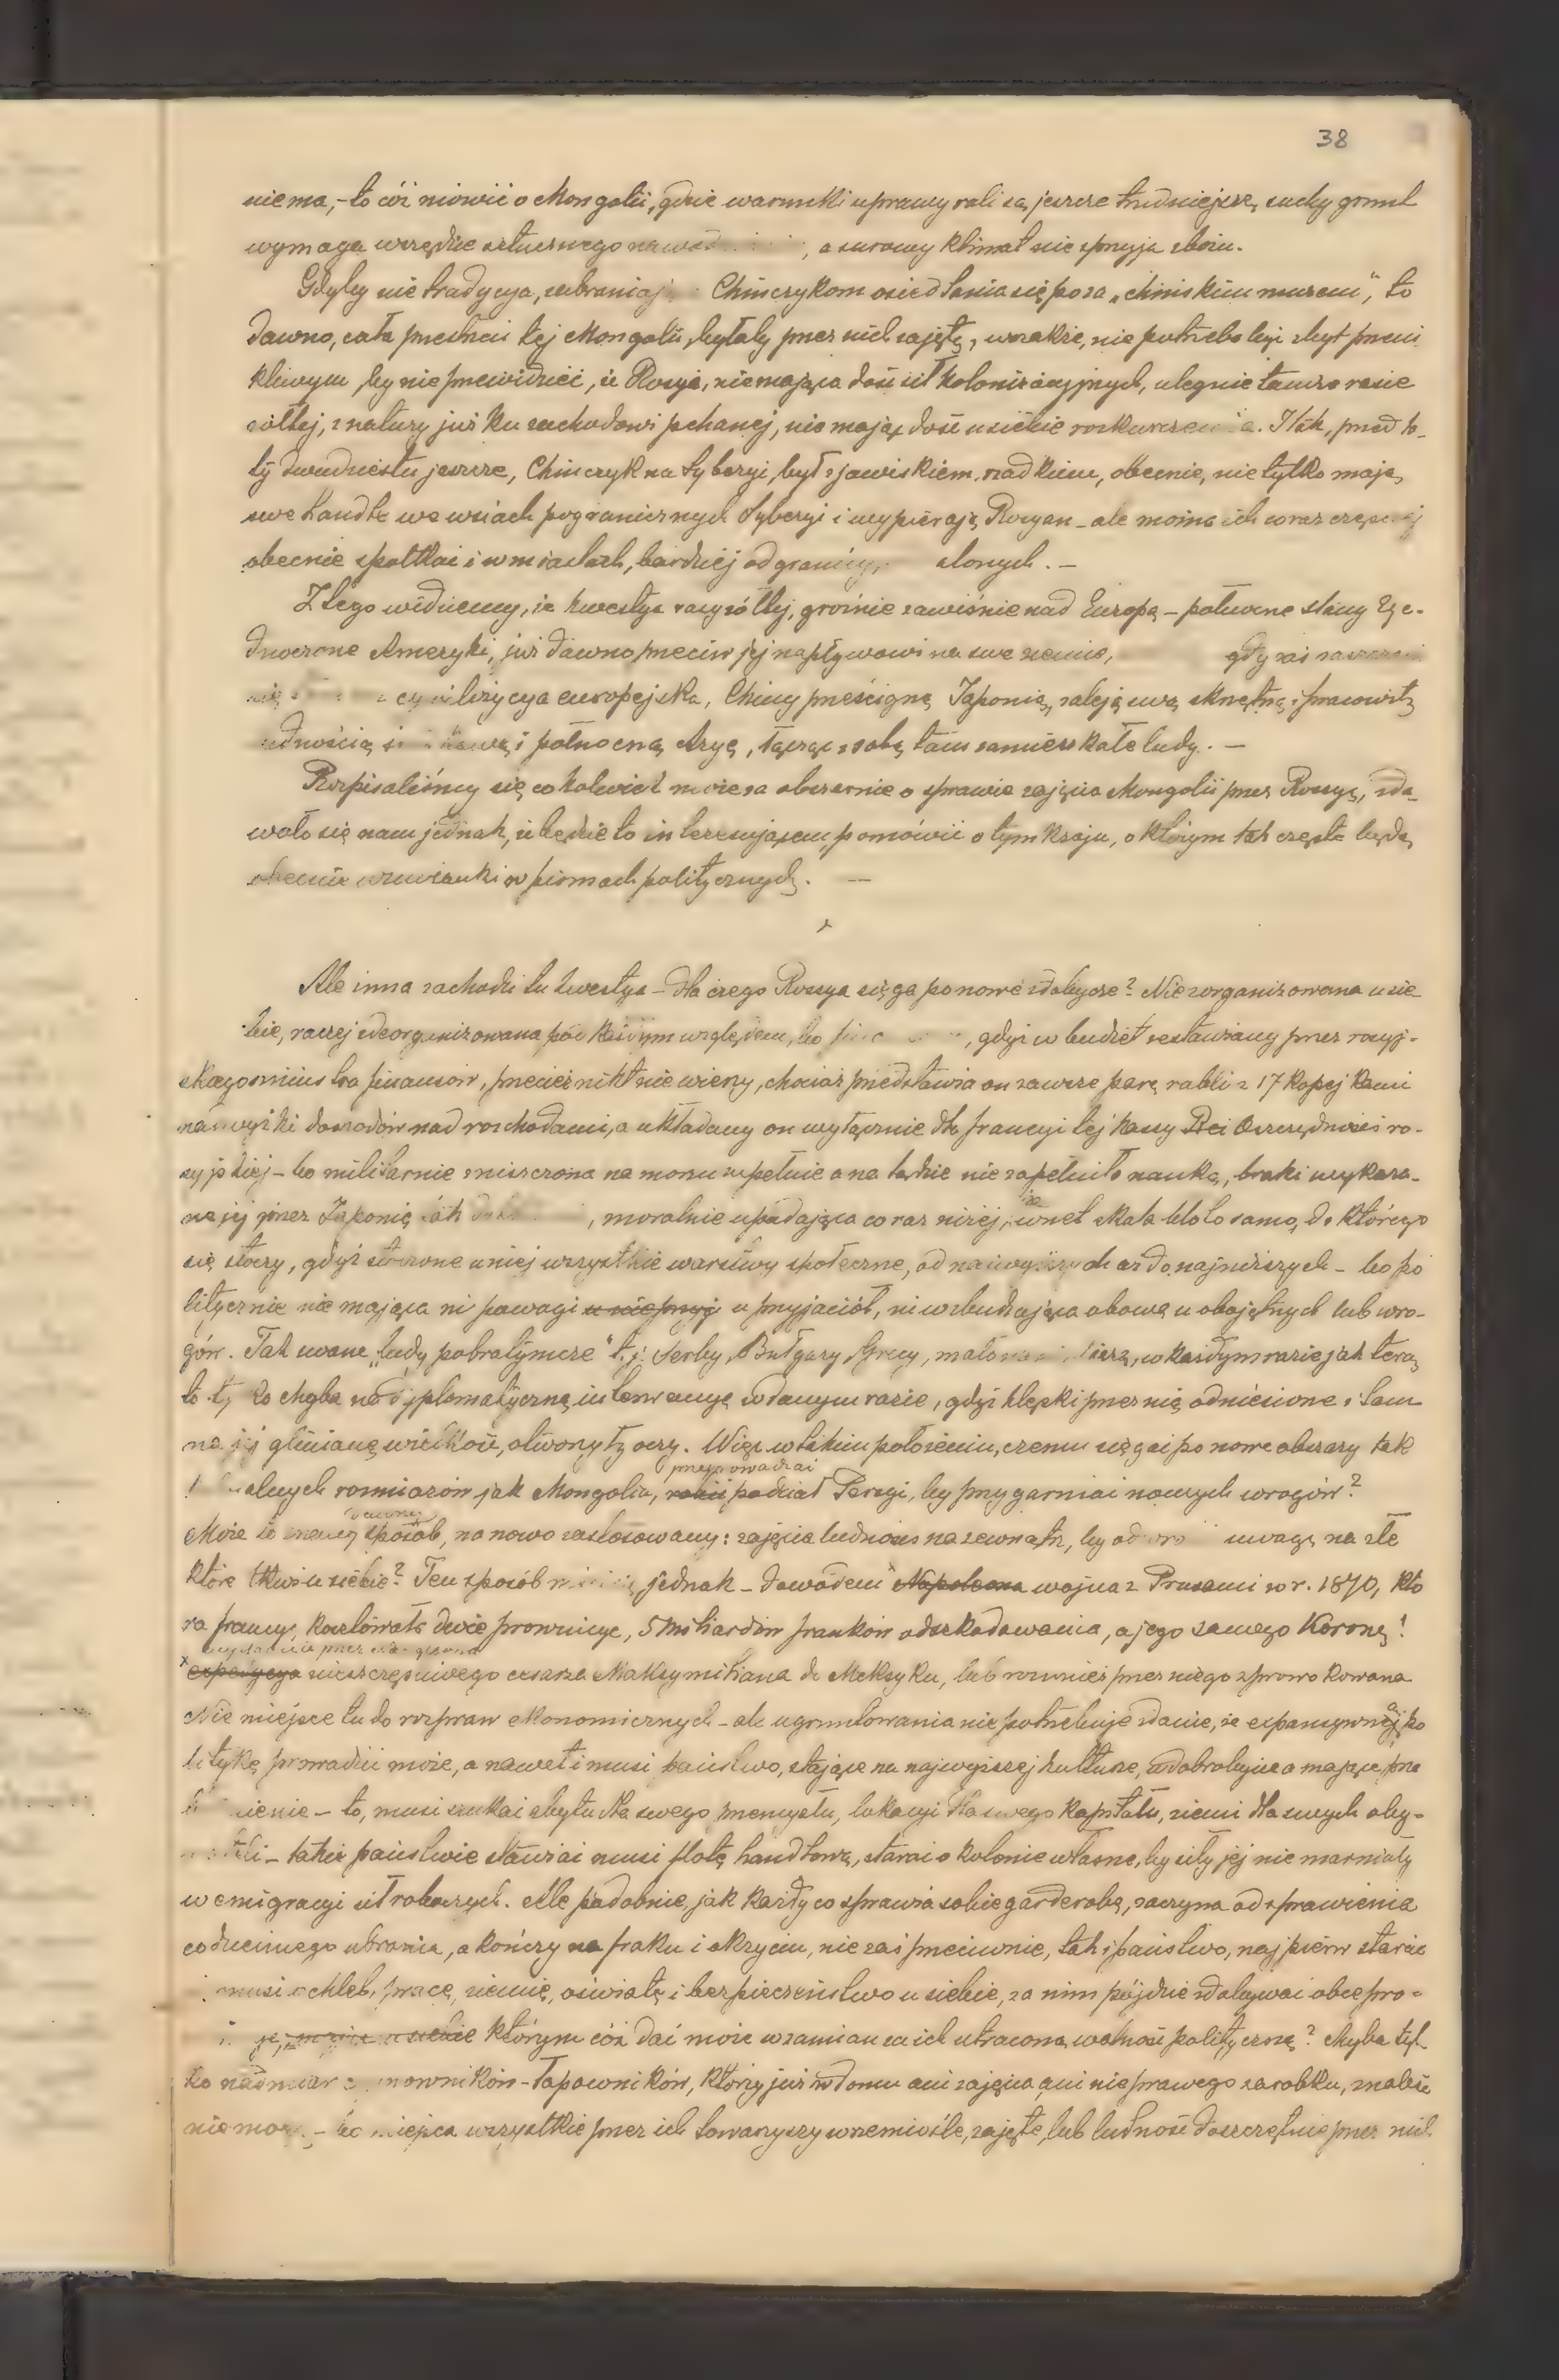 38
niema,- to cóż mówić o Mongolii, gdzie warunki uprawy roli są jeszcze trudniejsze, suchy grunt
wymaga wszędzie sztucznego , a surowy klimat nie sprzyja zbożu.
Gdyby nie tradycya, Chińczykom osiedlania się poza „chińskim murem", to
dawno, cała przestrzeń tej Mongolii, byłaby przez nich zajętą, wszakże, nie potrzeba być zbyt przeni
kliwym, by nie przewidzieć, że Rosyja, niemająca dość sił kolonizacyjnych, ulegnie tam rasie
żółtej, z natury już ku zachodowi pchanej, nie mając dość u siebie . I tak, przed la-
ty dwudziestu jeszcze, Chińczyk na Syberyi, był zjawiskiem rzadkiem, obecnie, nie tylko mają
swe handle we wsiach pogranicznych Syberyi i wypierają Rosyan - ale można ich coraz
obecnie spotkać i w miastach, bardziej od granicy, . -
Z tego widzimy, że kwestya rasy żółtej, groźnie zawiśnie nad Europą - Stany Zje-
dnoczone Ameryki, już dawno przeciw jej napływowi na swe ziemie, gdy zaś
się cywilizycya europejska, Chiny prześcigną Japonię, zaleją swą skrzętną i pracowitą
i północną Azyę, łącząc z sobą tam zamieszkałe ludy. -
Rozpisaliśmy się cokolwiek może za obszernie o sprawie zajęcia Mongolii przez Rossyę, zda-
wało się nam jednak, że będzie to interesującem, pomówić o tym kraju, o którym tak częste będą
obecnie wzmianki w pismach politycznych. -
x
Ale inna zachodzi tu kwestya - dla czego Rossya sięga po nowe zdobycze? Niezorganizowana u sie
bie, raczej zdeorganizowana pod każdym względem, bo , gdyż w budżet zestawiany przez rosyj-
skiego ministra finansów, przecież nikt nie wierzy, chociaż przedstawia on zawsze parę rubli z 17 kopejkami
nadwyżki dochodów nad rozchodami, a układany on wyłącznie dla francyi tej kassy Oszczędności ro-
syjskiej - bo militarnie zniszczona na morzu zupełnie a na lądzie nie zapełniła nauką, braki wykaza-
ne jej przez Japonię tak , moralnie upadająca coraz niżej, że wnet skala błoto samo, do którego
się stoczy, gdyż stoczone u niej wszystkie warstwy społeczne, od najwyższych aż do najniższych - bo po
litycznie nie mająca ni powagi u nieprzyj u przyjaciół, ni wzbudzająca obawę u obojętnych lub wro-
gów. Tak zwane „ludy pobratymcze" t.j. Serby, Bułgary, Grecy, mało , w każdym razie jak teraz
to chyba na dyplomatyczną interwencyę w danym razie, gdyż klęski przez nią odniesione i tam
na jej glinianą wielkość, otworzyły oczy. Więc w takim położeniu, czemu sięgać po nowe obszary tak
rozmiarów jak Mongolia, robić przeprowadzać podział Persyi, by przygarniać nowych wrogów?
Może to dawny sposób, na nowo zastosowany: zajęcia ludności na zewnątrz, by uwagę na złe
które tkwi u siebie? Ten sposób jednak - dowodem Napoleona wojna z Prusami w r. 1870, któ
ra francyę kosztowała dwie prowincye, 5 miliardów franków odszkodowania, a jego samego Koronę!
x expedycya nieszczęśliwego cesarza Maksymiliana do Meksyku, lub również przez niego sprowokowana
Nie miejsce tu do rozpraw ekonomicznych - ale ugruntowania nie potrzebuje zdanie, że expansywną po
litykę prowadzić może, a nawet i musi państwo, stojące na najwyższej kulturze, w dobrobycie a mające prze
- to, musi szukać zbytu dla swego przemysłu, lokacyi dla swego kapitału, ziemi dla swych oby-
- takie państwo stwarzać musi flotę handlową, starać o kolonie własne, by siły jej nie marniały
w emigracyi sił roboczych. Ale podobnie, jak każdy co sprawia sobie garderobę, zaczyna od sprawienia
codziennego ubrania, a kończy na fraku i okryciu, nie zaś przeciwnie, tak i państwo, najpierw starać
musi o chleb, pracę, ziemię, oświatę i bezpieczeństwo u siebie, za nim pójdzie zdobywać obce pro-
którym cóż dać może w zamian za ich utraconą wolność polityczną? Chyba tyl-
ko nadmiar -łapowników, którzy już w domu ani zajęcia ani nieprawego zarobku, znaleść
nie mogą - bo miejsca wszystkie przez ich towarzyszy w rzemiośle, zajęte, lub ludność doszczętnie przez nich